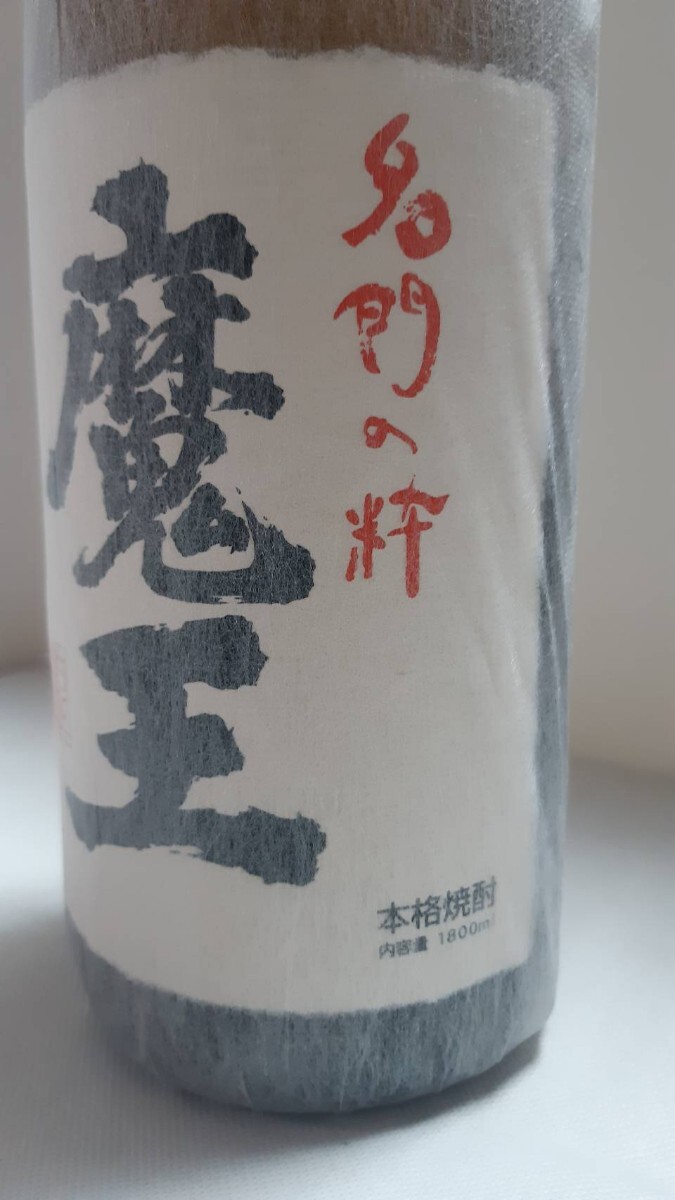 名門の粋
魔王
本格焼酎
内容量 1800ml